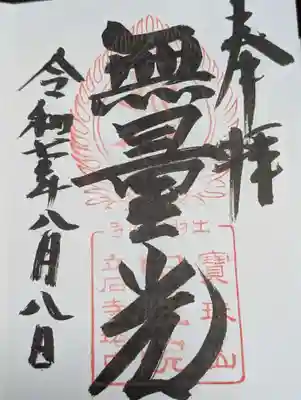 奉拝
無量光
令和七年八月八日
寶珠山
立石寺